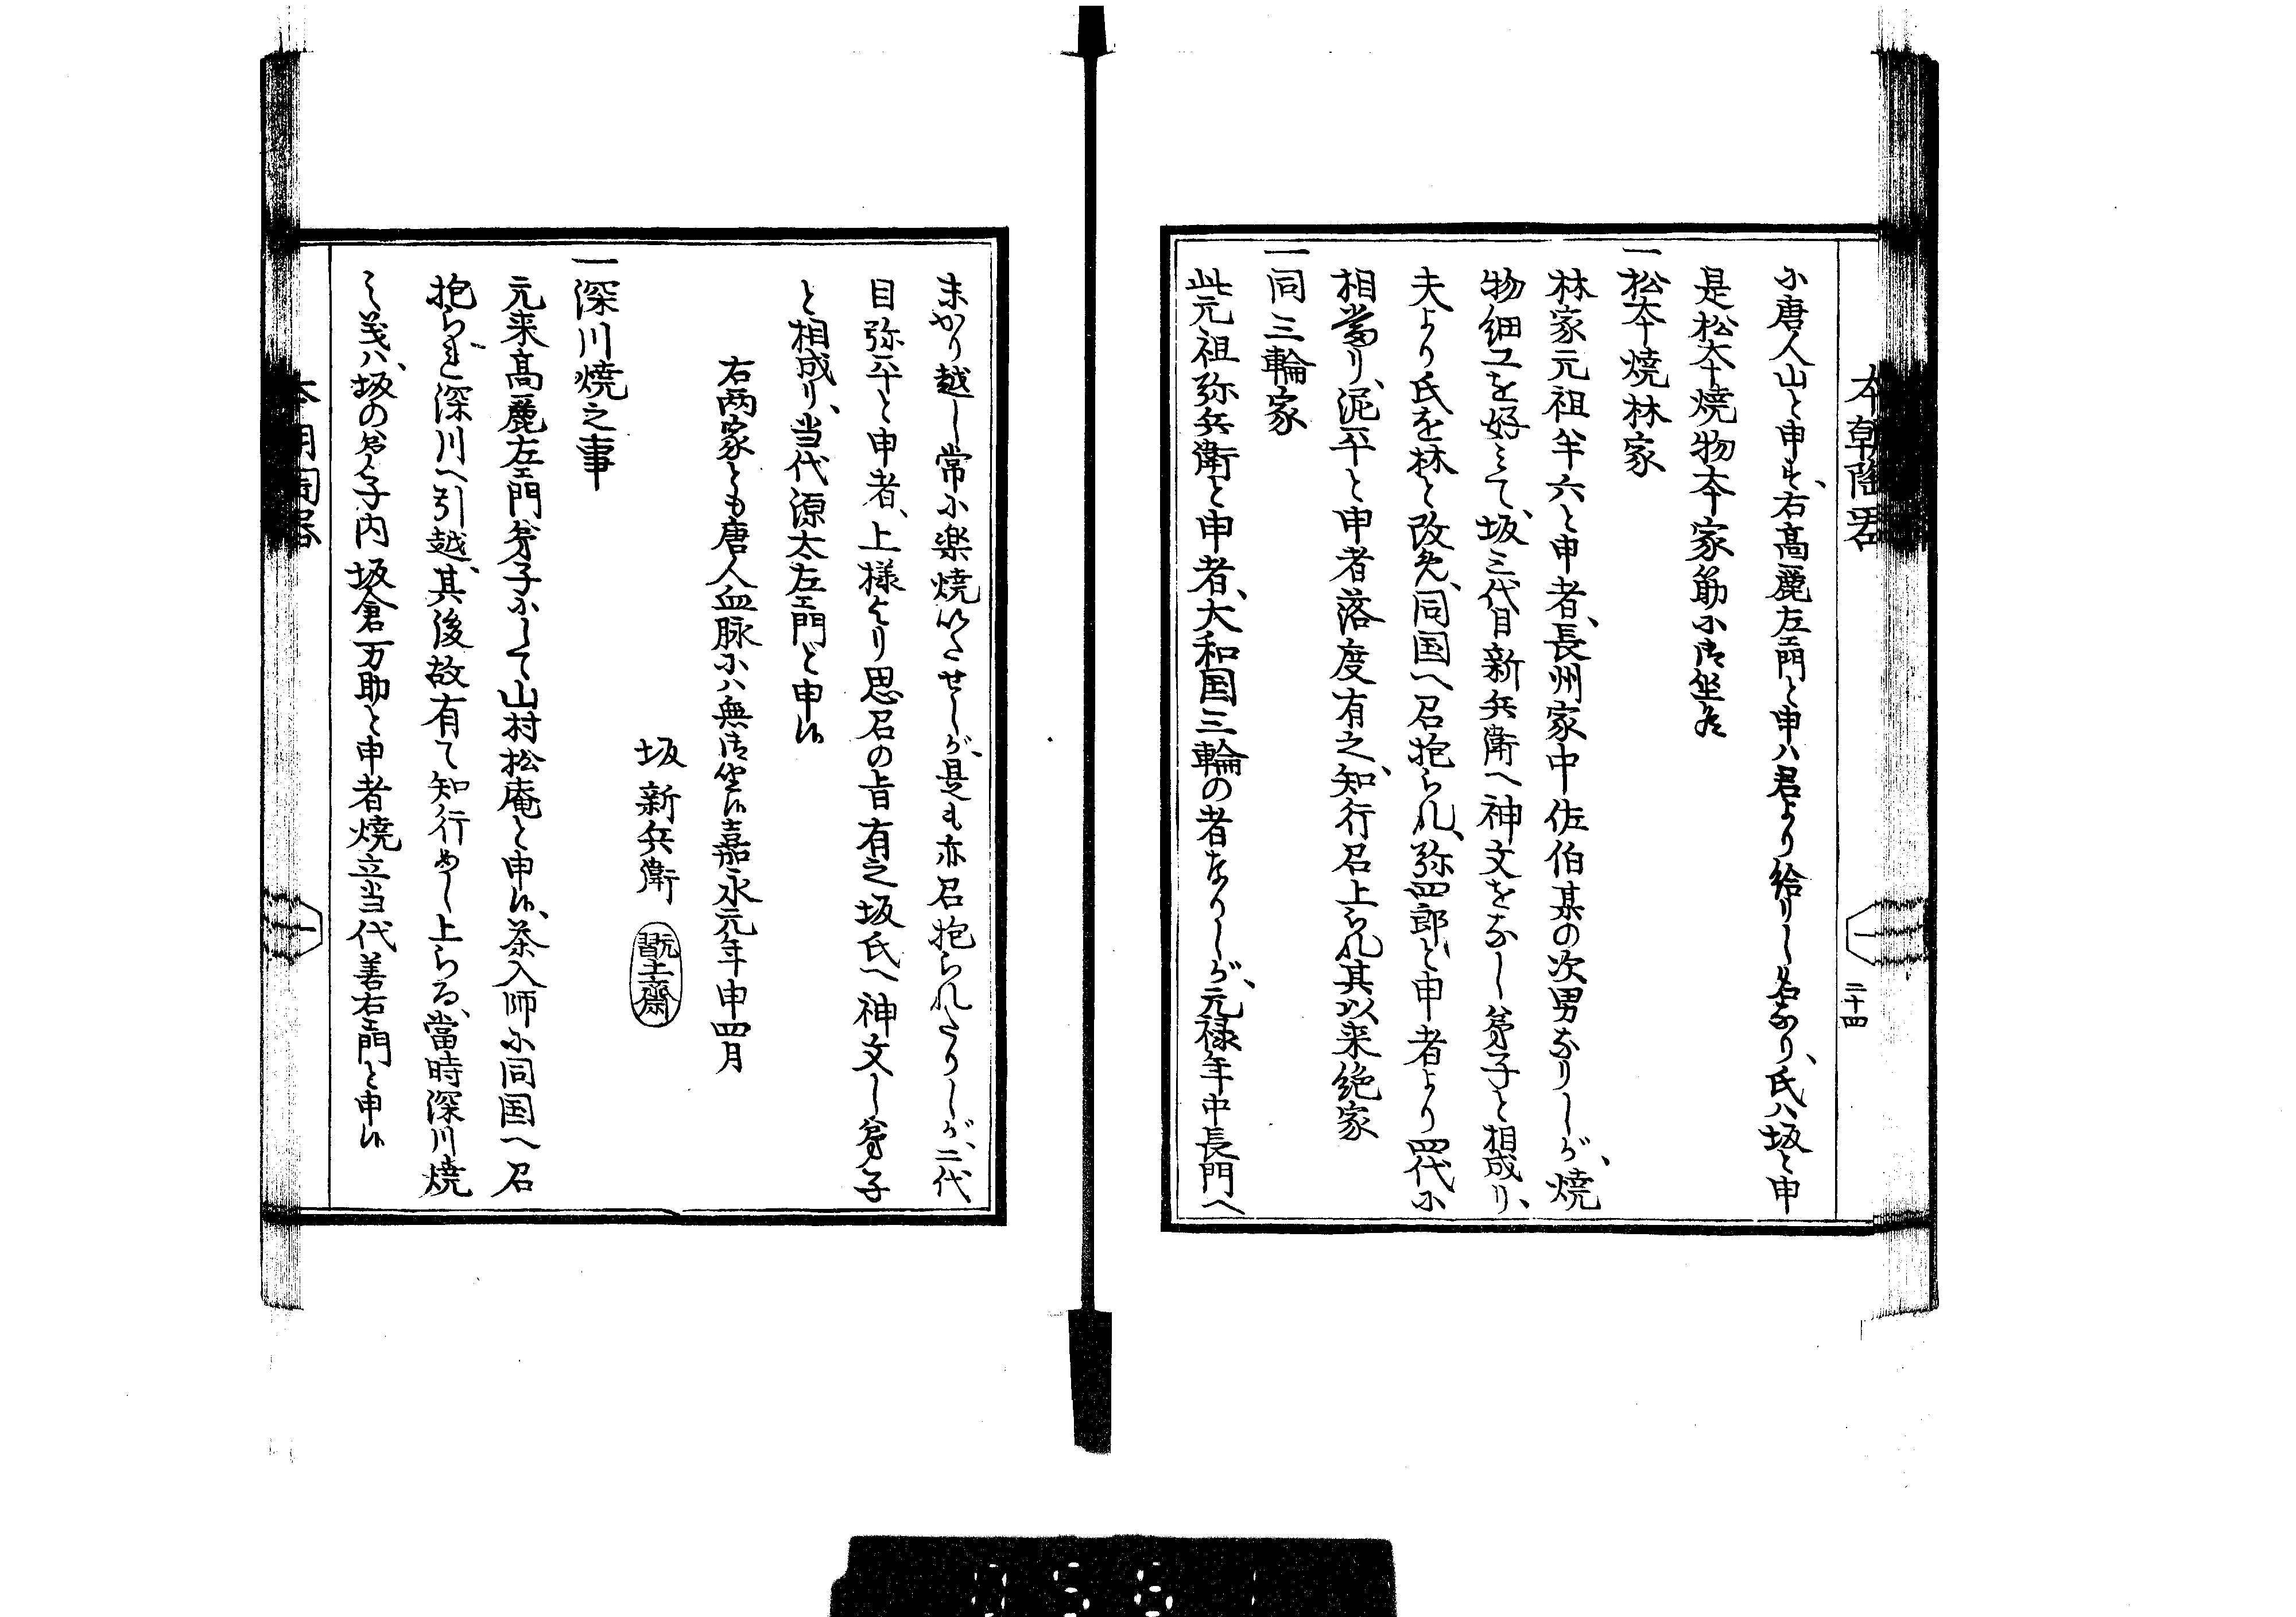 本朝陶器
二十四
に唐人山と申す、右高麗左エ門と申ハ君より給りし名なり、氏ハ坂と申
是松本焼物本家筋に御坐候
一松本焼林家
林家元祖半六と申者、長州家中佐伯某の次男なりしが、焼
物細工を好ミて、坂三代目新兵衛へ神文をなし弟子と相成り、
夫より氏を林と改め、同国へ召抱られ、弥四郎と申者より四代に
相當り、泥平と申者落度有之、知行召上られ其以来絶家
一同三輪家
此元祖弥兵衛と申者、大和国三輪の者なりしが、元禄年中長門へ
まかり越し常に楽焼いたせしが、是も亦召抱られたりしが、二代
目弥平と申者、上様より思召の旨有之坂氏へ神文し弟子
と相成り、当代源太左エ門と申候
右両家とも唐人血脉にハ無御坐候嘉永元年申四月
坂新兵衛
翫土齋
一深川焼之事
元来高麗左エ門弟子にして山村松庵と申候、茶入師に同国へ召
抱られ深川へ引越、其後故有て知行めし上らる、當時深川焼
之義ハ、坂の弟子内坂倉万助と申者焼立当代善右エ門と申候